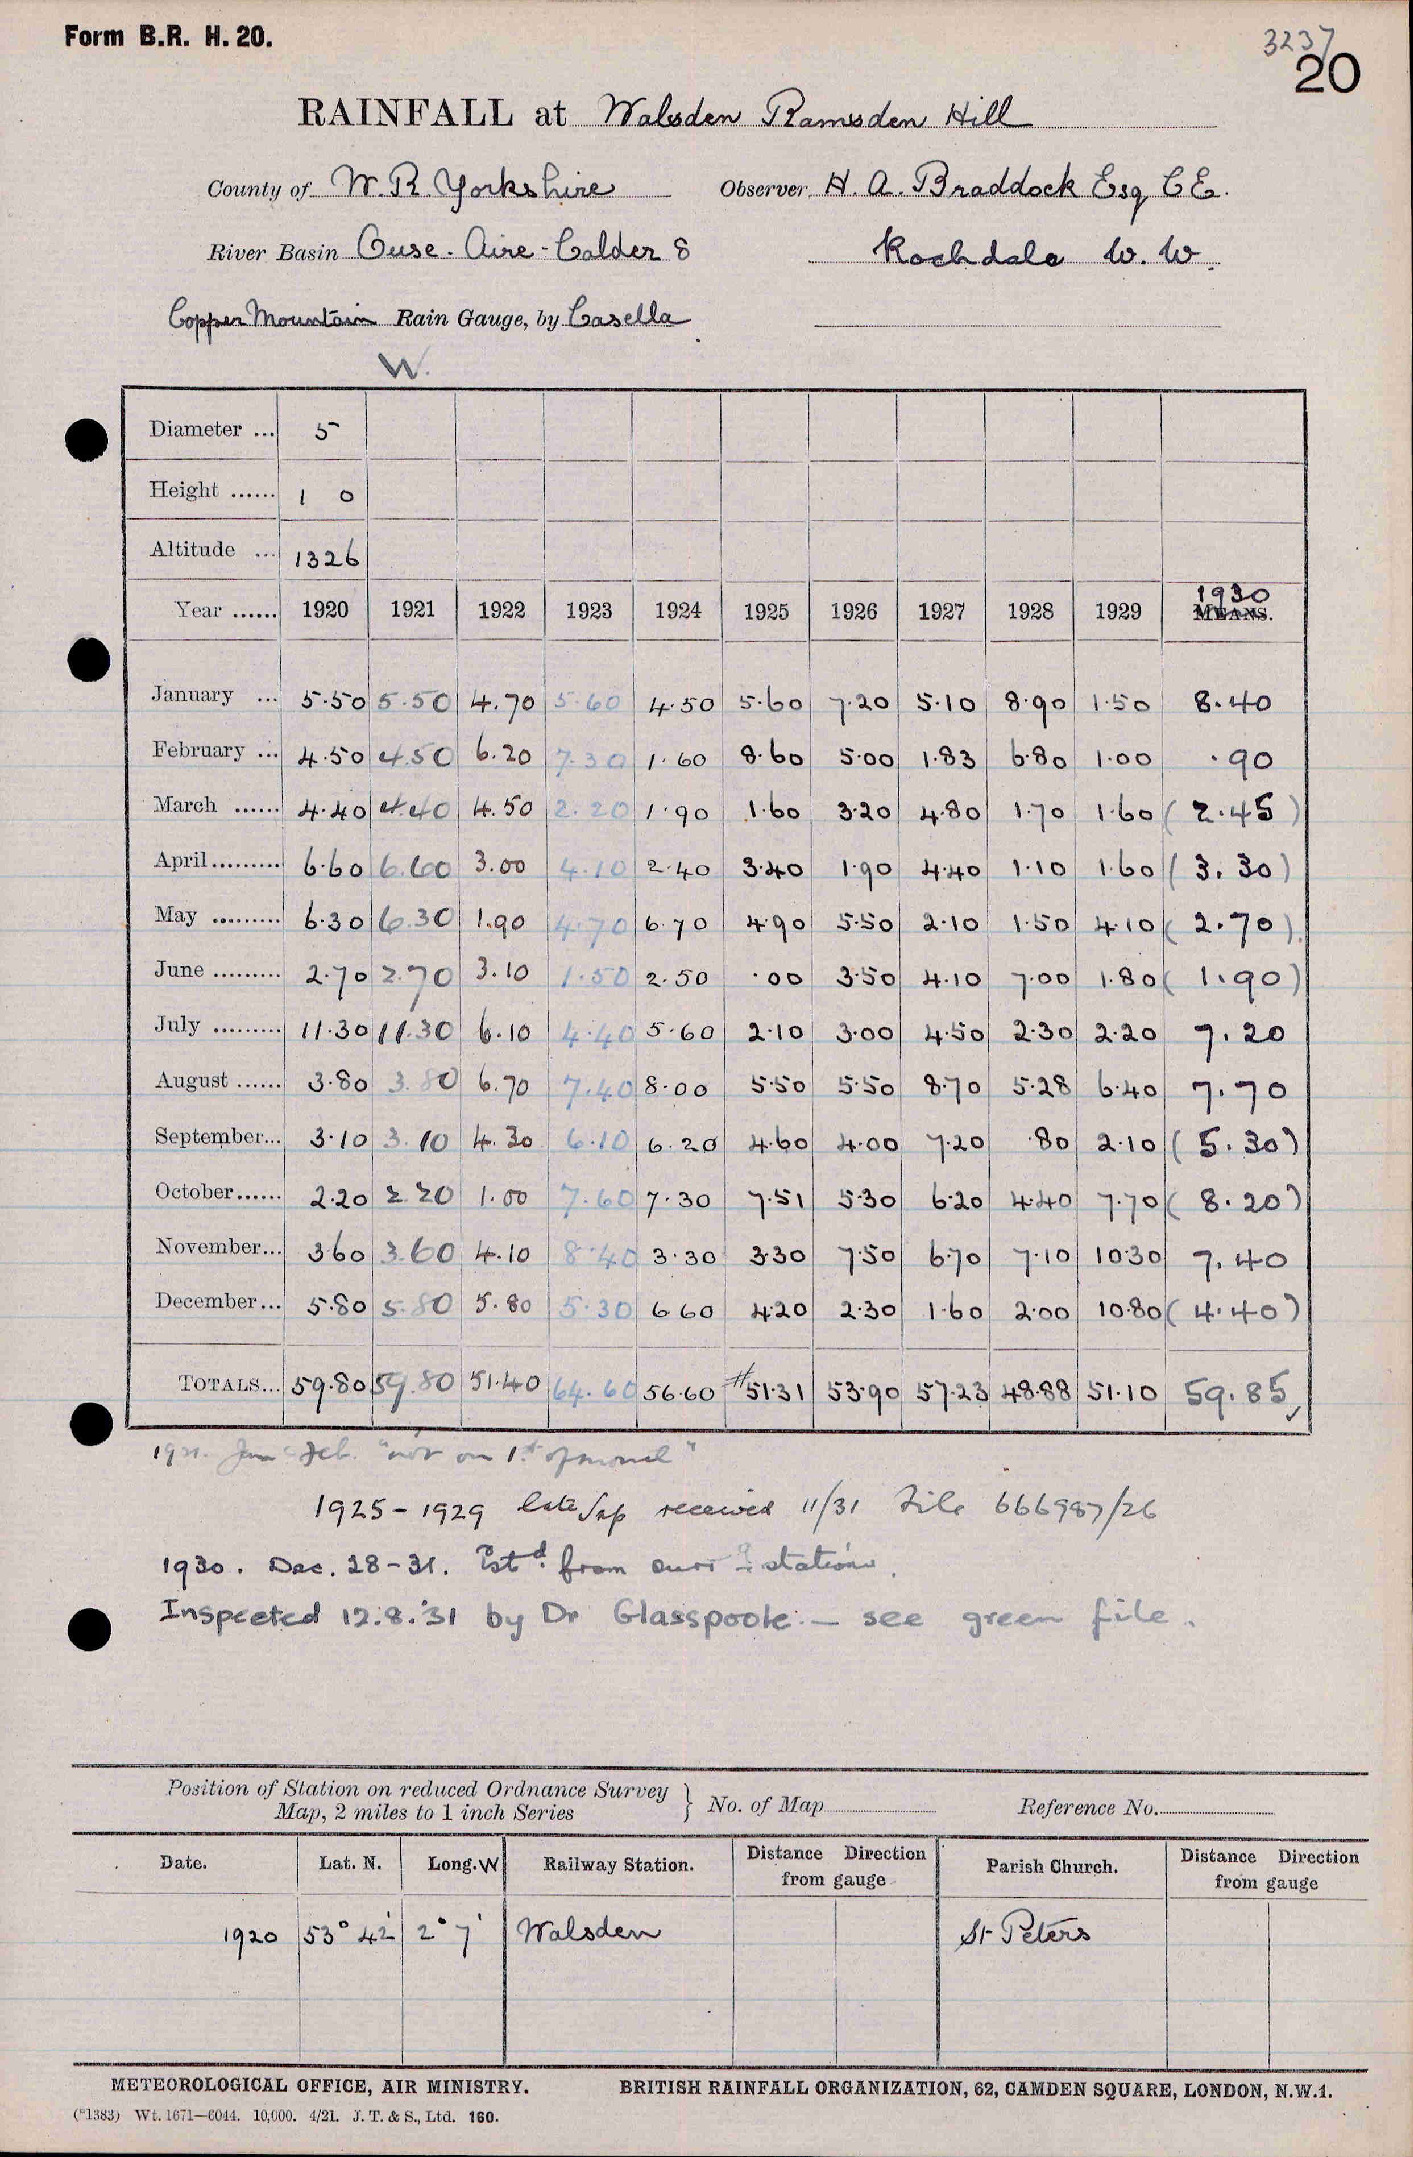 Form B.R. H. 20.
3237
20
RAINFALL at Walsden Ramsden Hill
County of W. R. Yorkshire Observer H. A. Braddock Esq C.E.
River Basin Ouse - Aire - Calder 8 Rochdale W. W.
Copper Mountain Rain Gauge, by Casella
W.
Diameter ... 5
Height ...... 1 0
Altitude ... 1326
Year ...... 1920 1921 1922 1923 1924 1925 1926 1927 1928 1929 1930 MEANS.
January ... 5.50 5.50 4.70 5.60 4.50 5.60 7.20 5.10 8.90 1.50 8.40
February ... 4.50 4.50 6.20 7.30 1.60 8.60 5.00 1.83 6.80 1.00 .90
March ...... 4.40 4.40 4.50 2.20 1.90 1.60 3.20 4.80 1.70 1.60 (2.45)
April......... 6.60 6.60 3.00 4.10 2.40 3.40 1.90 4.40 1.10 1.60 (3.30)
May ......... 6.30 6.30 1.90 4.70 6.70 4.90 5.50 2.10 1.50 4.10 (2.70)
June ......... 2.70 2.70 3.10 1.50 2.50 .00 3.50 4.10 7.00 1.80 (1.90)
July ......... 11.30 11.30 6.10 4.40 5.60 2.10 3.00 4.50 2.30 2.20 7.20
August ...... 3.80 3.80 6.70 7.40 8.00 5.50 5.50 8.70 5.28 6.40 7.70
September... 3.10 3.10 4.30 6.10 6.20 4.60 4.00 7.20 .80 2.10 (5.30)
October...... 2.20 2.20 1.00 7.60 7.30 7.51 5.30 6.20 4.40 7.70 (8.20)
November... 3.60 3.60 4.10 8.40 3.30 3.30 7.50 6.70 7.10 10.30 7.40
December... 5.80 5.80 5.80 5.30 6.60 4.20 2.30 1.60 2.00 10.80 (4.40)
TOTALS... 59.80 59.80 51.40 64.60 56.60 #51.31 53.90 57.23 48.88 51.10 59.85 ✓
Jan Feb. "not on 1st of
1925-1929 late received 11/31 File 666987/26
1930. Dec. 28-31. Estd. from surr g stations.
Inspected 12.8.'31 by Dr Glasspoole. — see green file.
Position of Station on reduced Ordnance Survey
Map, 2 miles to 1 inch Series } No. of Map Reference No.
Date. Lat. N. Long. W Railway Station. Distance Direction from gauge Parish Church. Distance Direction from gauge
1920 53° 42' 2° 7' Walsden St Peters
METEOROLOGICAL OFFICE, AIR MINISTRY. BRITISH RAINFALL ORGANIZATION, 62, CAMDEN SQUARE, LONDON, N.W.1.
(*1383) Wt. 1671—6044. 10,000. 4/21. J. T. & S., Ltd. 160.